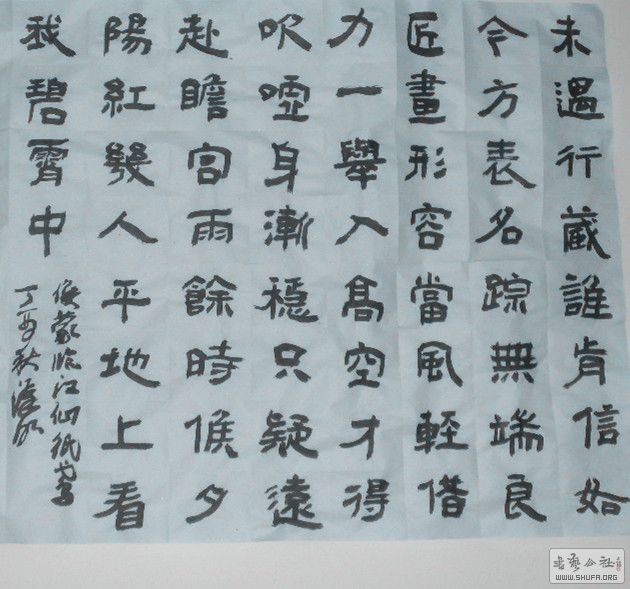 未遇行藏誰肯信如
今方表名踪無端良
匠畫形容當風輕借
力一舉入髙空才得
吹噓身漸穩只疑遠
赴瞻宫雨餘時候夕
陽紅幾人平地上看
我碧霄中
侯蒙临江仙紙鳶
丁亥秋
書藝公社
WWW.SHUFA.ORG